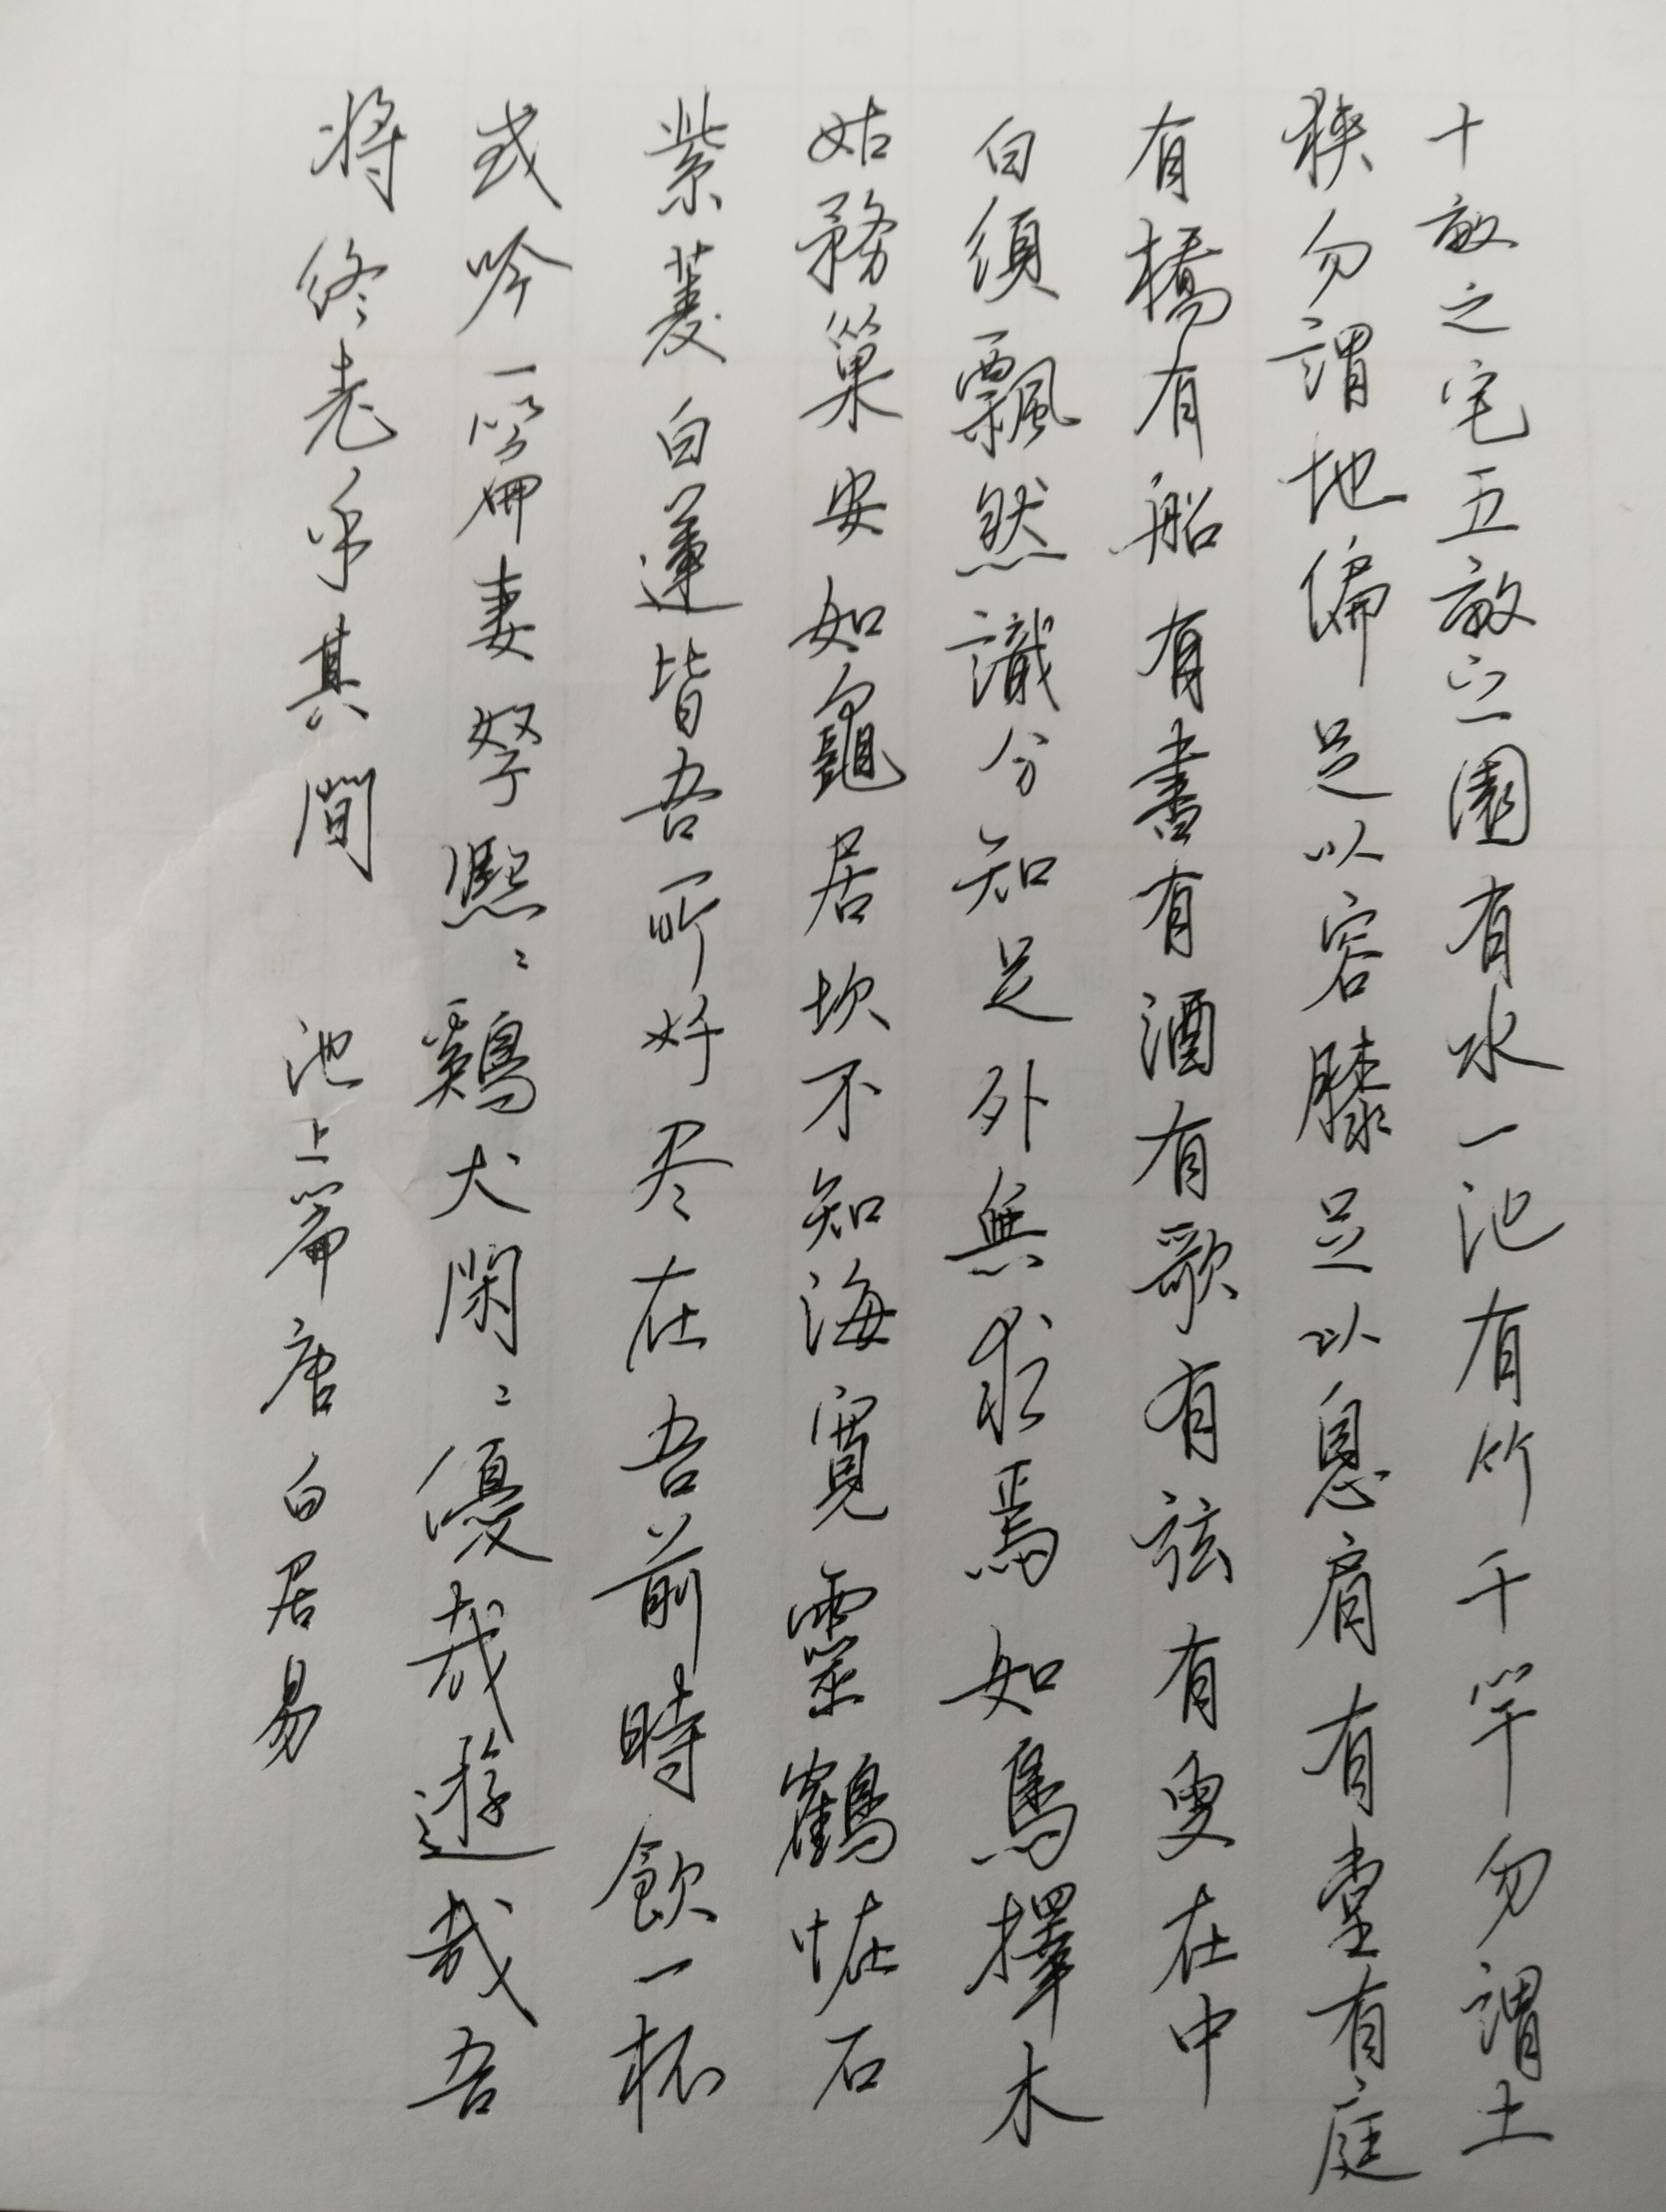 十畝之宅五畝之園有水一池有竹千竿勿謂土
狹勿謂地偏足以容膝足以息肩有堂有庭
有橋有船有書有酒有歌有弦有叟在中
白須飄然識分知足外無求焉如鳥擇木
姑務巢安如龜居坎不知海寬靈鶴怪石
紫菱白蓮皆吾所好尽在吾前時飲一杯
或吟一篇妻孥熙〻鷄犬閑〻優哉遊哉吾
將終老乎其間 池上篇 唐 白居易